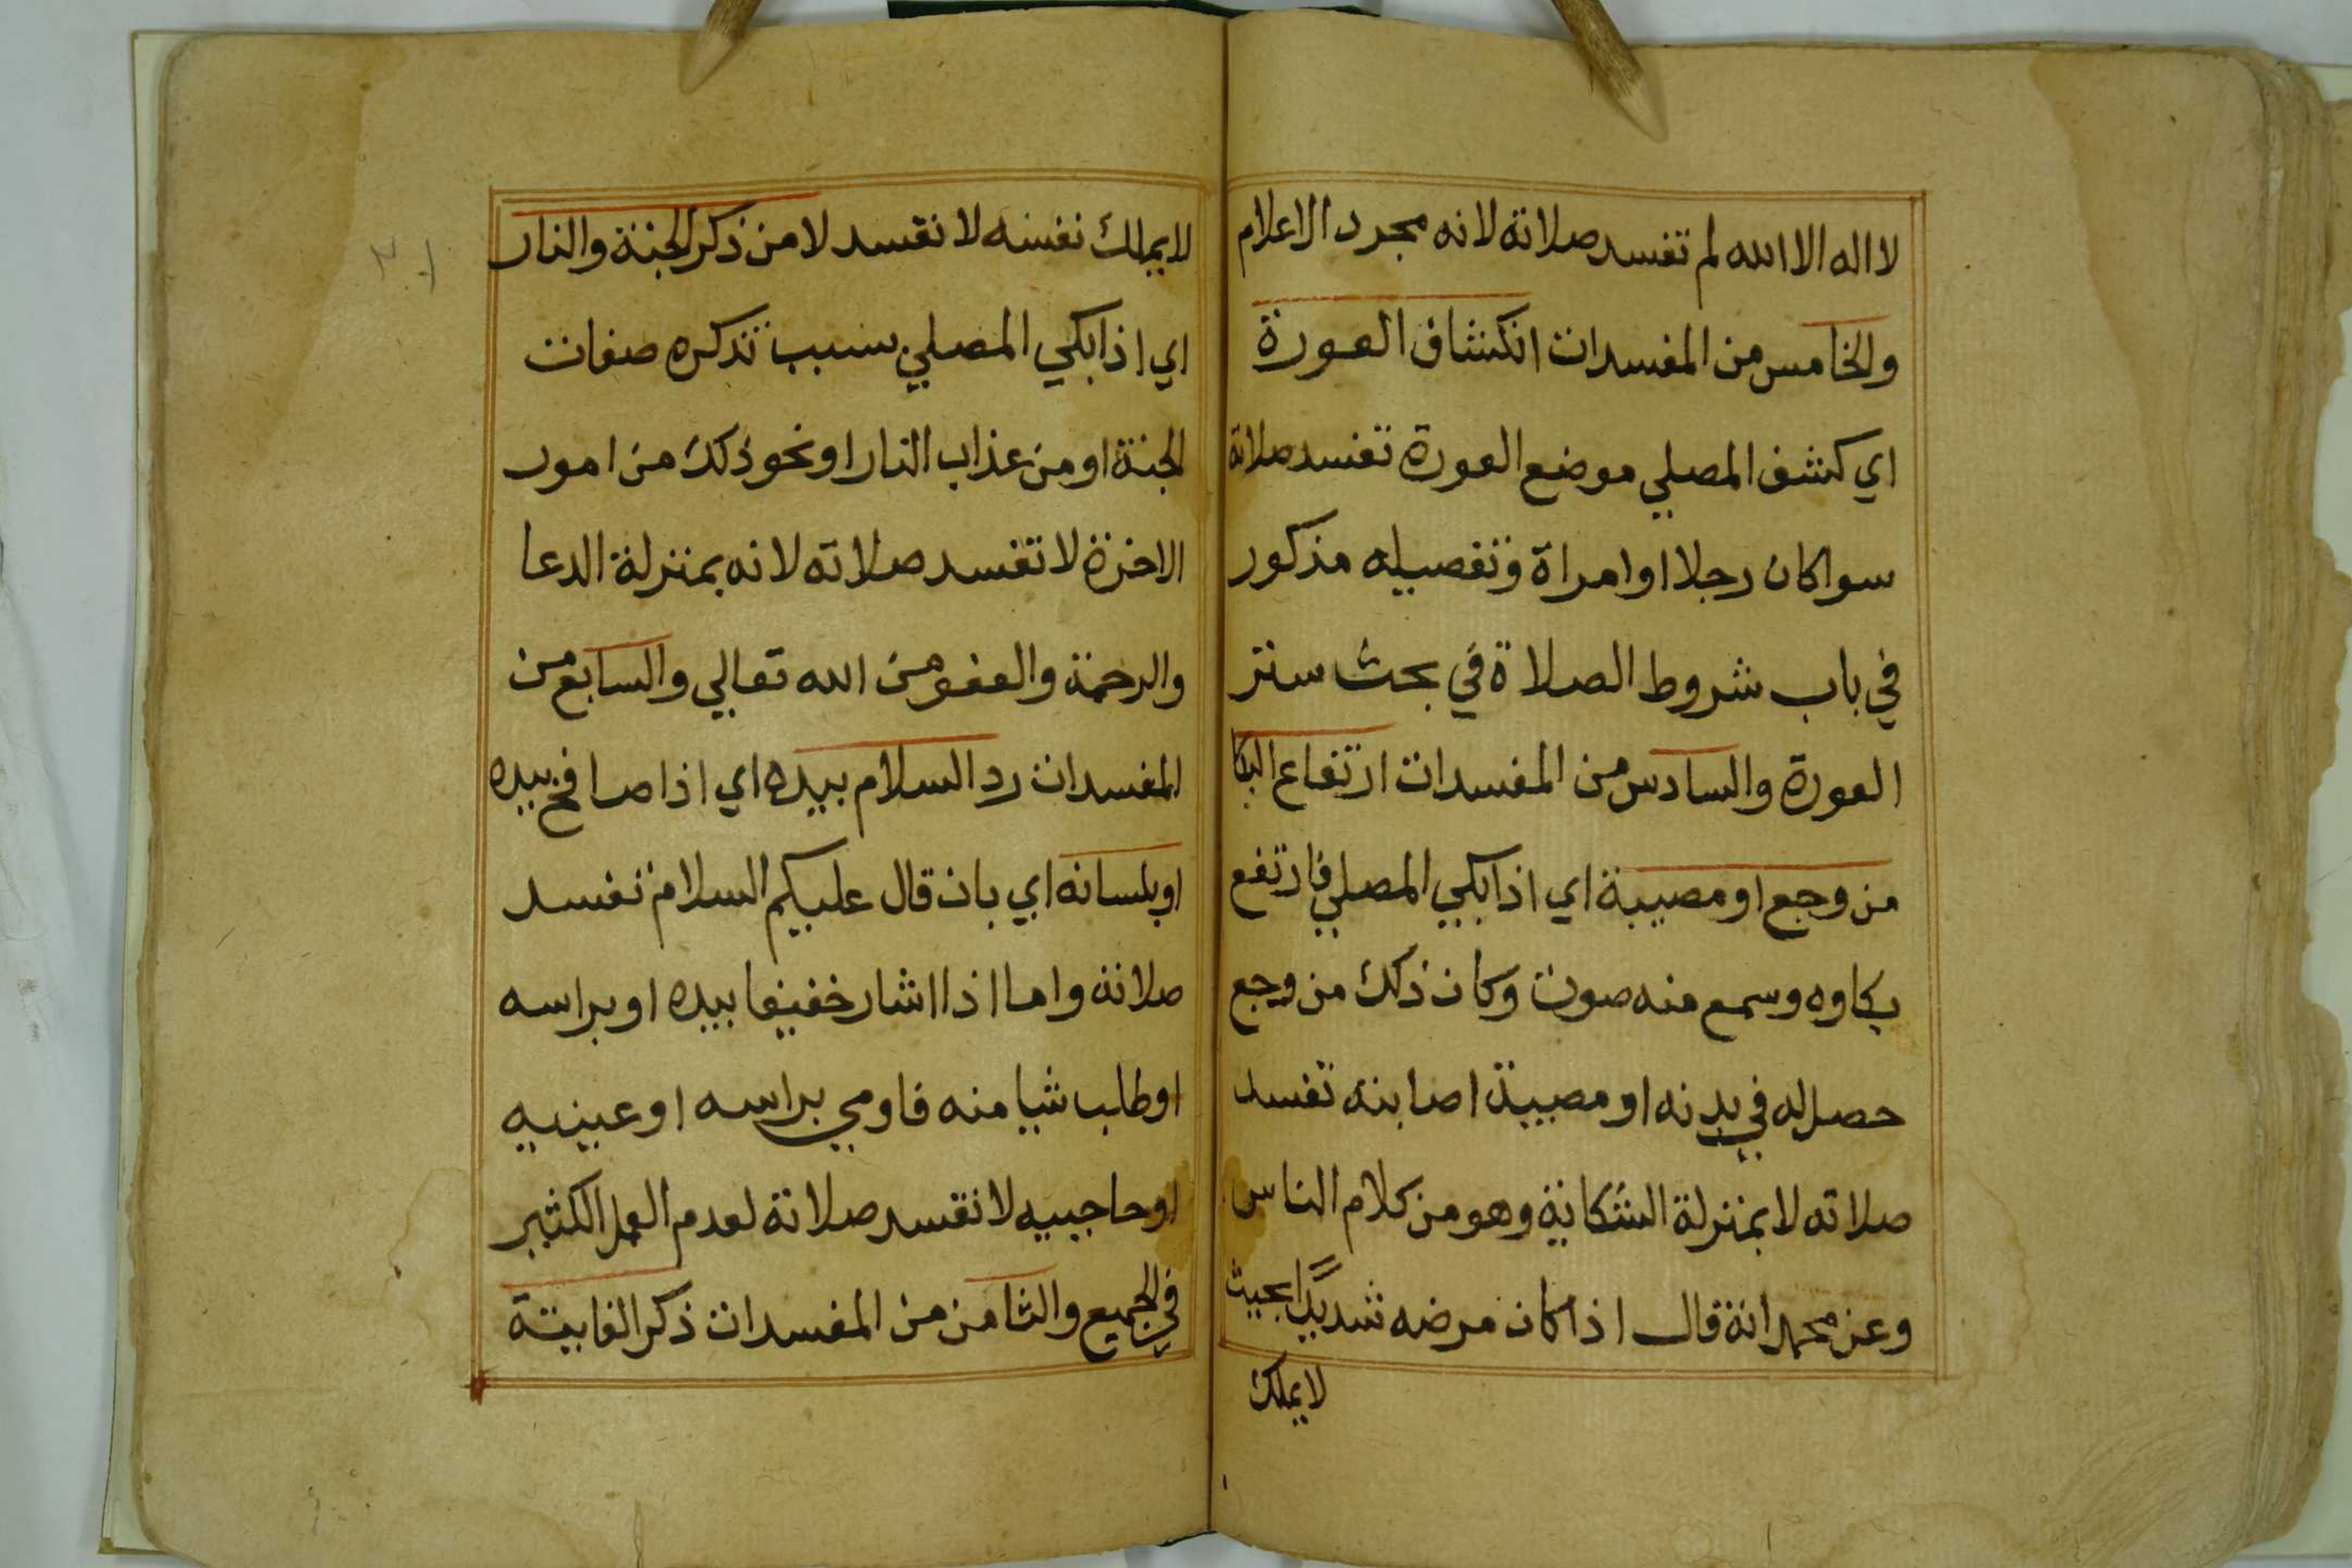 لا اله الا الله لم تفسد صلاته لانه مجرد الاعلام
والخامس من المفسدات انكشاف العورة
اي كشف المصلي موضع العورة تفسد صلاته
سوا كان رجلا او امراة وتفصيله مذكور
في باب شروط الصلاة في بحث ستر
العورة والسادس من المفسدات ارتفاع البكا
من وجع او مصيبة اي اذا بكي المصلي فارتفع
بكاوه وسمع منه صوت وكان ذلك من وجع
حصل له في بدنه او مصيبة اصابته تفسد
صلاته لا بمنزلة الشكاية وهو من كلام الناس
وعن محمد انه قال اذا كان مرضه شديدا بحيث
لا يملك
لا يملك نفسه لا تفسد لا من ذكر الجنة والنار
اي اذا بكي المصلي بسبب تذكره صفات
الجنة او من عذاب النار او نحو ذلك من امور
الاخرة لا تفسد صلاته لانه بمنزلة الدعا
والرحمة والعفو من الله تعالي والسابع من
المفسدات رد السلام بيده اي اذا صافح بيده
او بلسانه اي بان قال عليكم السلام تفسد
صلاته واما اذا اشار خفيفا بيده او براسه
او طلب شيا منه فاومي براسه او عينيه
او حاجبيه لا تفسد صلاته لعدم العمل الكثير
في الجميع والثامن من المفسدات ذكر الفايتة